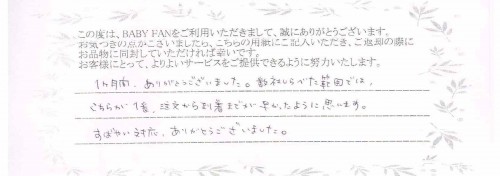 この度は、BABY FANをご利用いただきまして、誠にありがとうございます。
お気づきの点がございましたら、こちらの用紙にご記入いただき、ご返却の際に
お品物に同封していただければ幸いです。
お客様にとって、よりよいサービスをご提供できるように努力いたします。
1ヶ月間、ありがとうございました。数社しらべた範囲では、
こちらが1番、注文から到着までが早かったように思います。
すばやい対応、ありがとうございました。